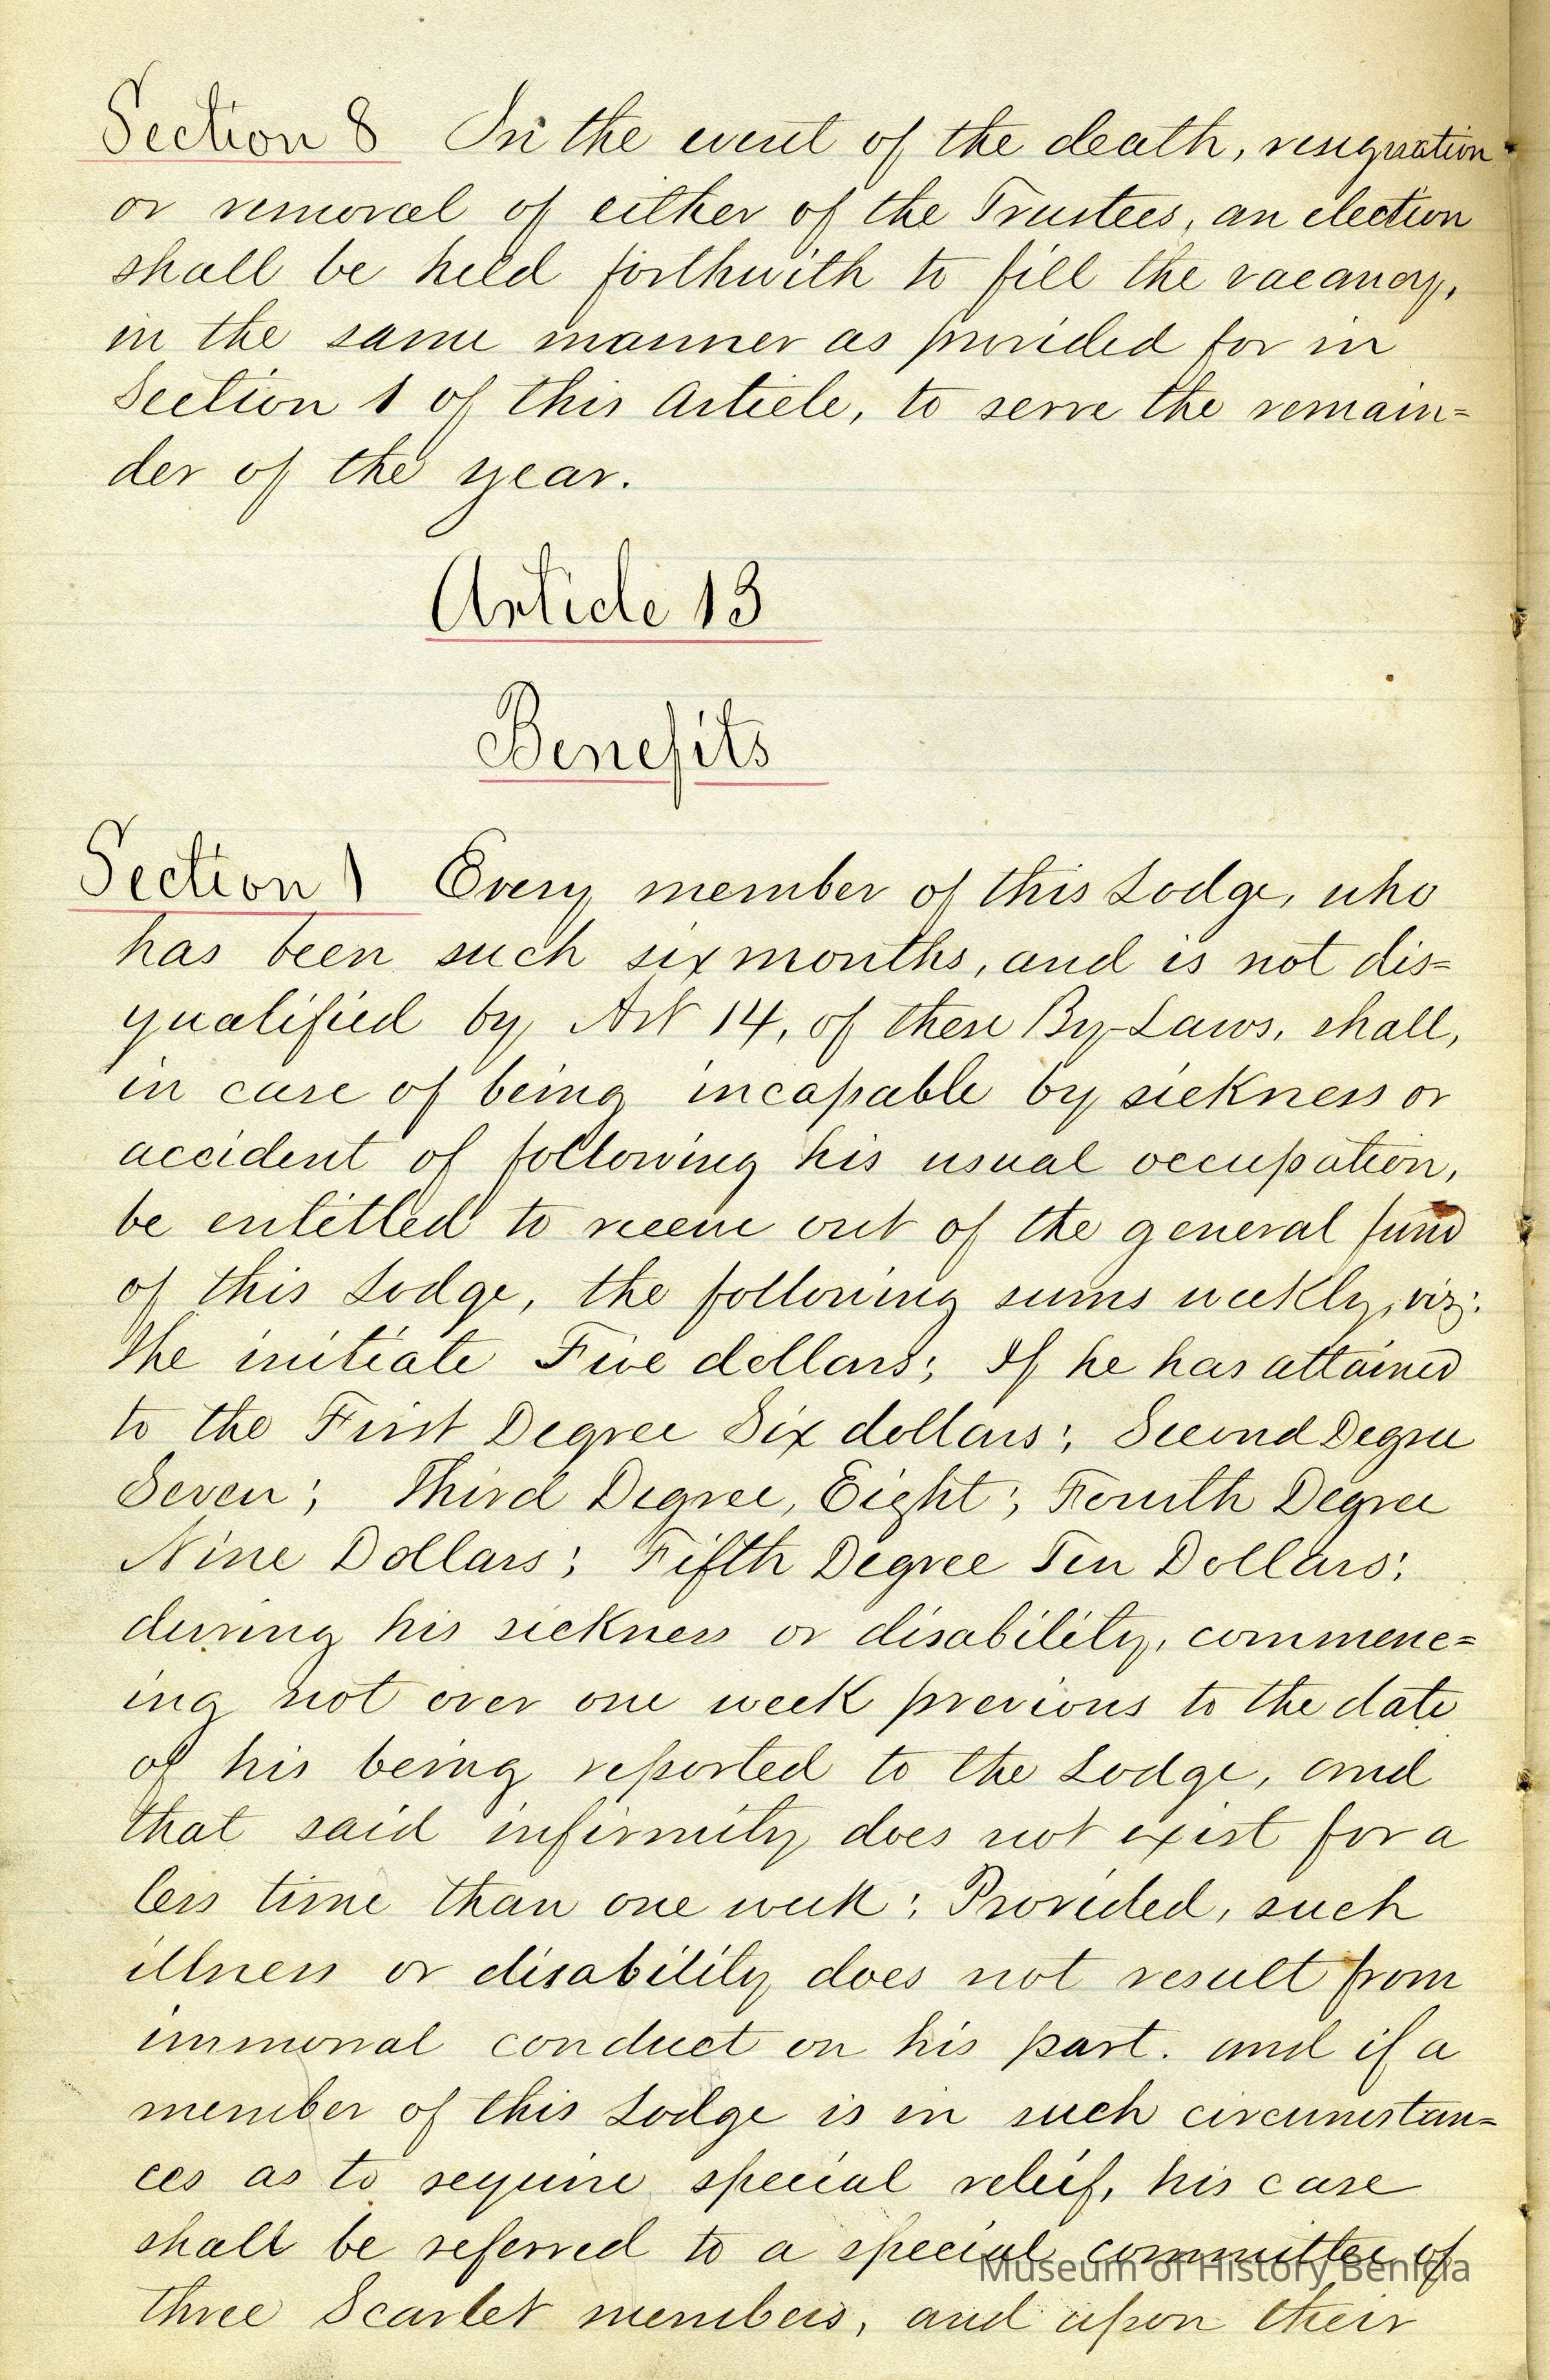 Section 8 In the event of the death, resignation
or removal of either of the Trustees, an election
shall be held forthwith to fill the vacancy,
in the same manner as provided for in
Section 1 of this Article, to serve the remain=
der of the year.
Article 13
Benefits
Section 1 Every member of this Lodge, who
has been such six months, and is not dis=
qualified by Art 14, of these By-Laws, shall,
in case of being incapable by sickness or
accident of following his usual occupation,
be entitled to receive out of the general fund
of this Lodge, the following sums weekly, viz:
The initiate Five dollars; If he has attained
to the First Degree Six dollars; Second Degree
Seven; Third Degree, Eight; Fourth Degree
Nine Dollars; Fifth Degree Ten Dollars;
during his sickness or disability, commenc=
ing not over one week previous to the date
of his being reported to the Lodge, and
that said infirmity does not exist for a
less time than one week; Provided, such
illness or disability does not result from
immoral conduct on his part. and if a
member of this Lodge is in such circumstan=
ces as to require special relief, his case
shall be referred to a special committee of
Museum of History Benicia
three Scarlet members, and upon their